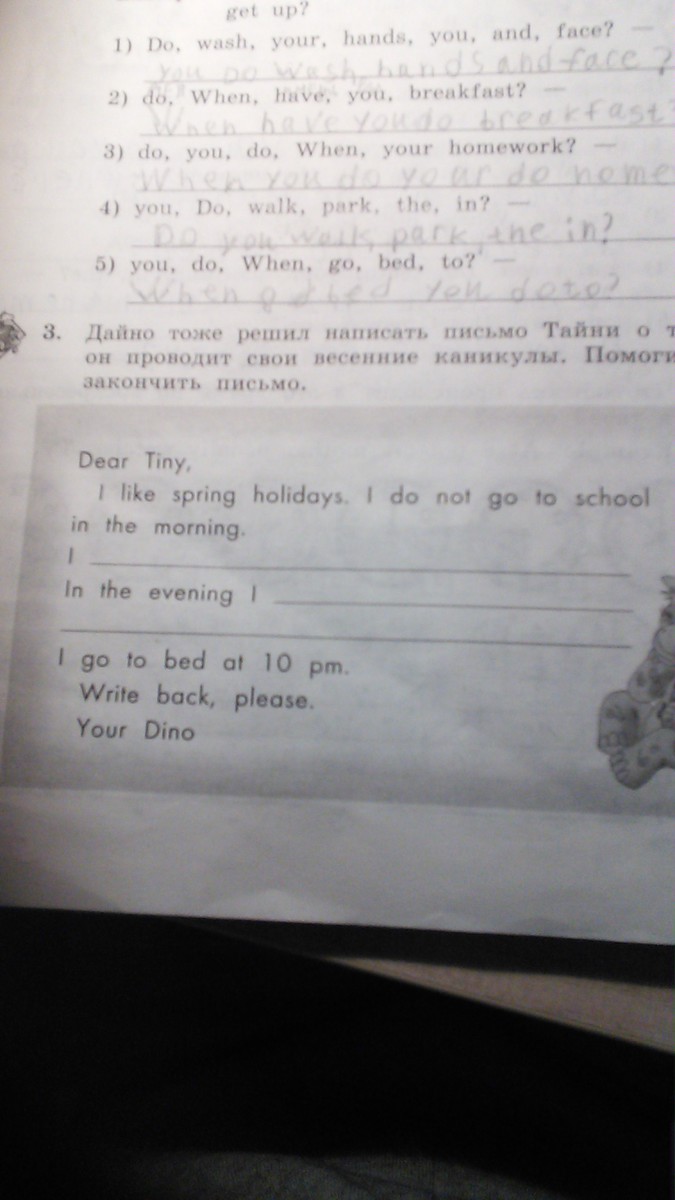 get up?
1) Do, wash, your, hands, you, and, face? —
You Do wash, hands and face?
2) do, When, have, you, breakfast? —
When have you do breakfast?
3) do, you, do, When, your homework? —
When you do your do home
4) you, Do, walk, park, the, in? —
Do you walk, park, the in?
5) you, do, When, go, bed, to? —
When bed you do to?
3. Дайно тоже решил написать письмо Тайни о т
он проводит свои весенние каникулы. Помоги
закончить письмо.
Dear Tiny,
I like spring holidays. I do not go to school
in the morning.
I
In the evening I
I go to bed at 10 pm.
Write back, please.
Your Dino